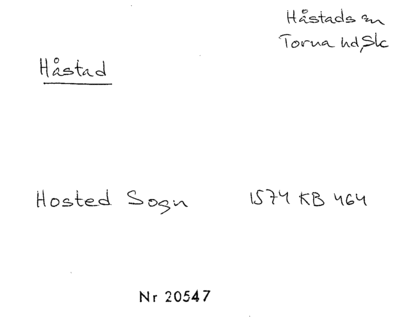 Håstads sn
Torna hd, Sk
Håstad
Hosted Sogn 1574 KB 464
Nr 20547